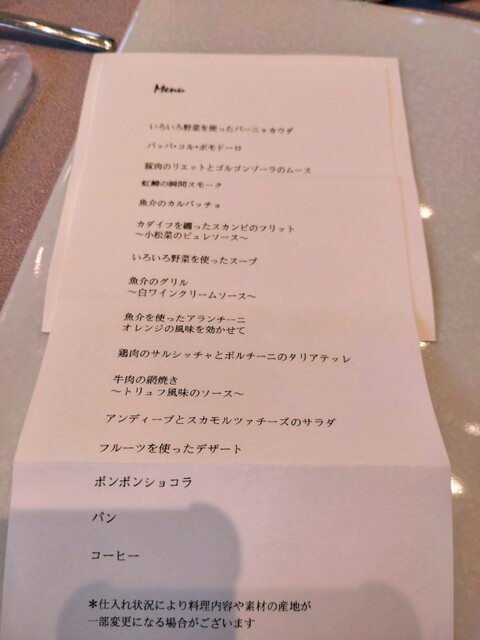 Menu
いろいろ野菜を使ったバーニャカウダ
パッパ・コル・ポモドーロ
豚肉のリエットとゴルゴンゾーラのムース
虹鱒の瞬間スモーク
魚介のカルパッチョ
カダイフを纏ったスカンピのフリット
～小松菜のピュレソース～
いろいろ野菜を使ったスープ
魚介のグリル
～白ワインクリームソース～
魚介を使ったアランチーニ
オレンジの風味を効かせて
鶏肉のサルシッチャとポルチーニのタリアテッレ
牛肉の網焼き
～トリュフ風味のソース～
アンディーブとスカモルツァチーズのサラダ
フルーツを使ったデザート
ボンボンショコラ
パン
コーヒー
＊仕入れ状況により料理内容や素材の産地が
一部変更になる場合がございます